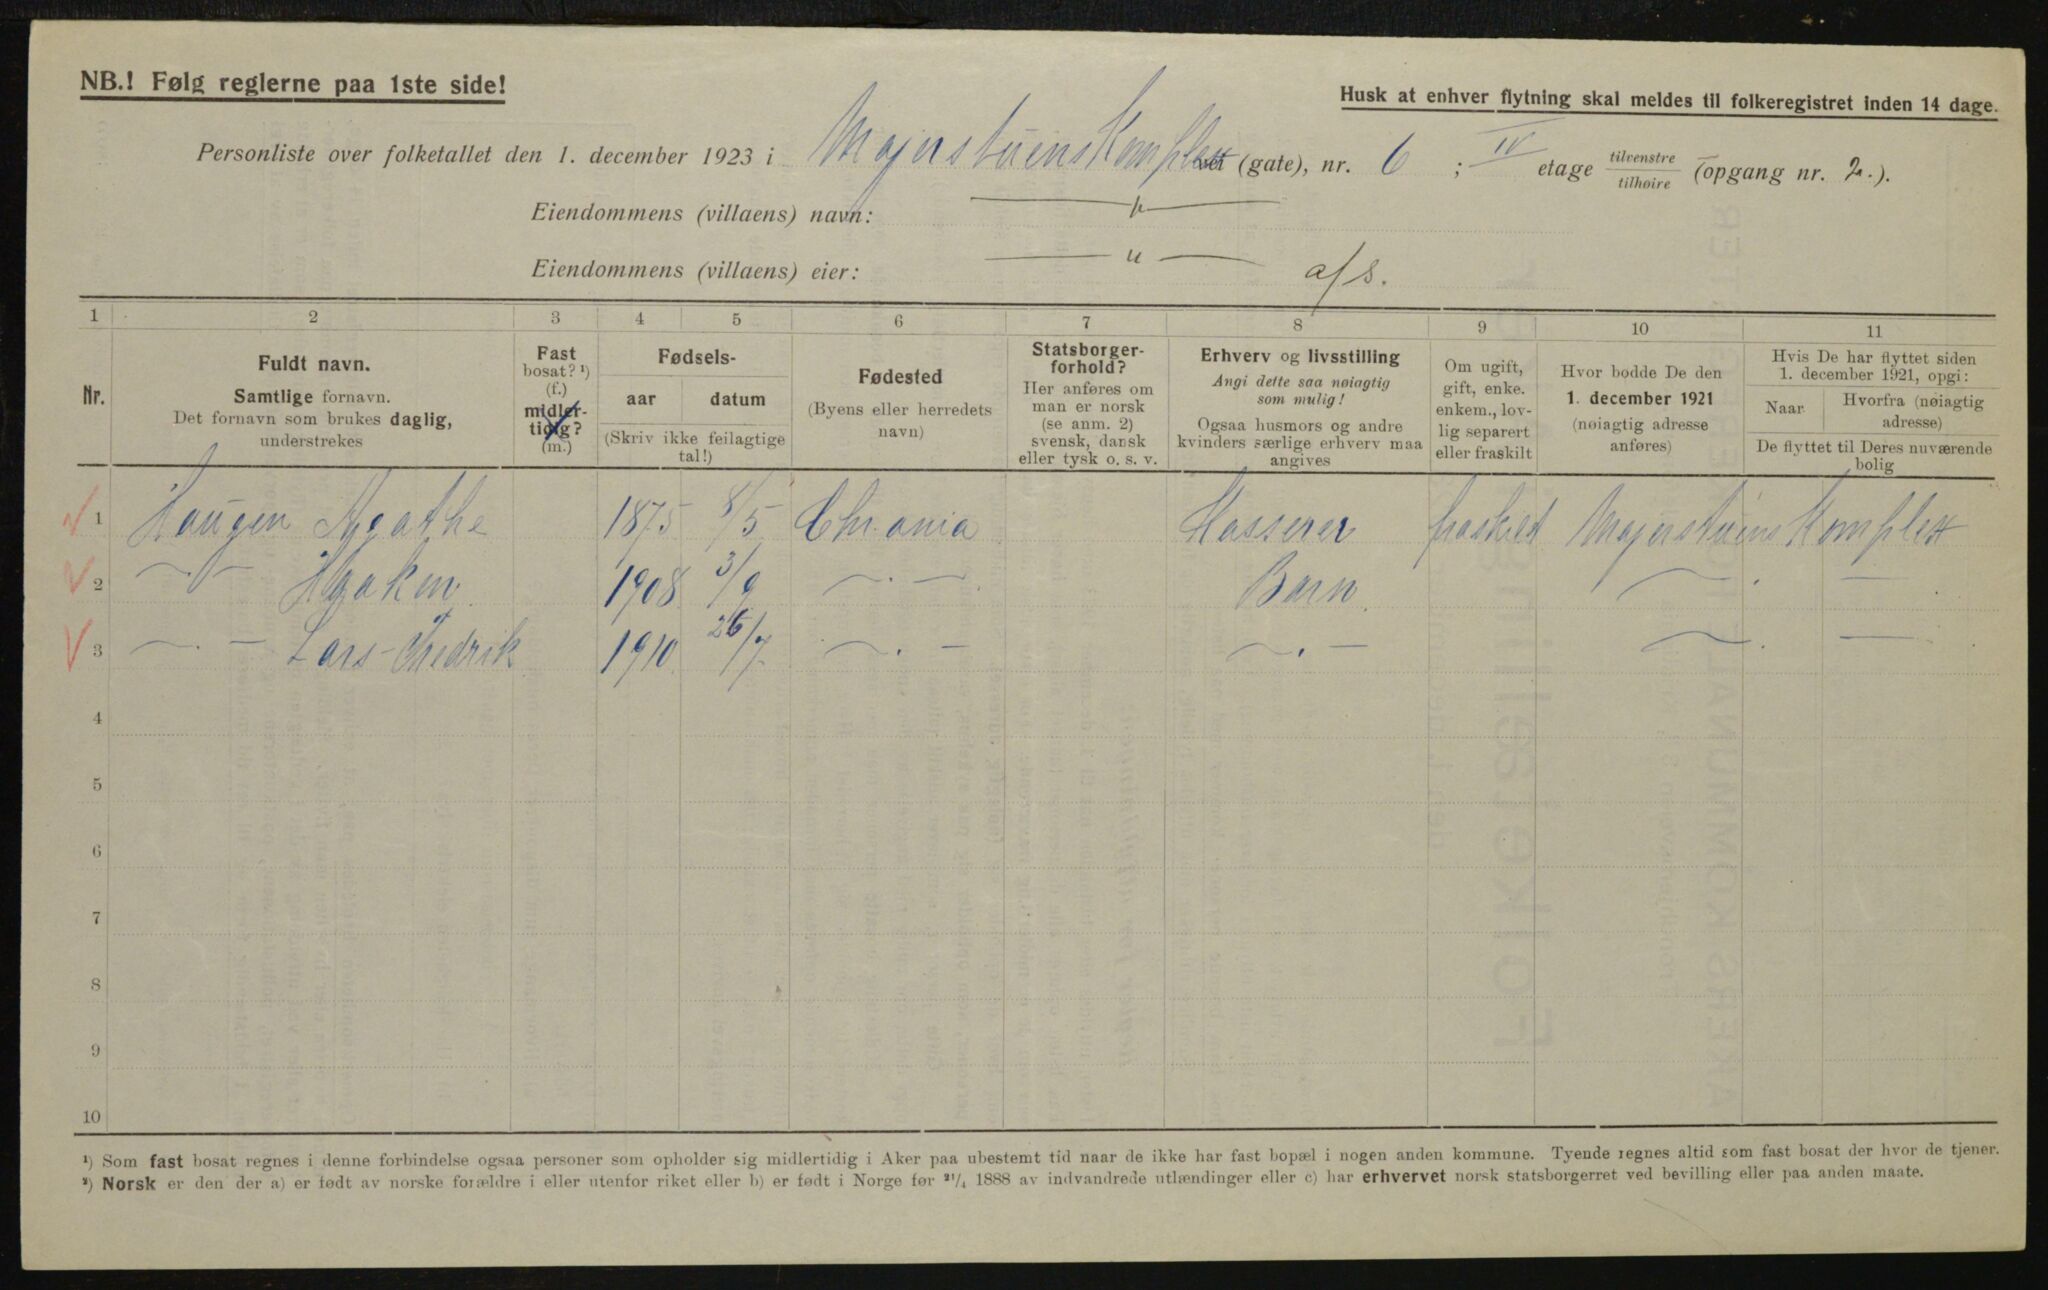 NB.! Følg reglerne paa 1ste side!
Husk at enhver flytning skal meldes til folkeregistret inden 14 dage.
Personliste over folketallet den 1. december 1923 i Majerstuens Komplex (gate), nr. 6 ; IV etage tilvenstre tilhøire (opgang nr. 2.).
Eiendommens (villaens) navn: — " —
Eiendommens (villaens) eier: — " — a/s.
1 2 3 4 5 6 7 8 9 10 11
Nr.
Fuldt navn.
Samtlige fornavn.
Det fornavn som brukes daglig,
understrekes
Fast
bosat? ¹)
(f.)
midler-
tidig?
(m.)
Fødsels-
aar datum
(Skriv ikke feilagtige
tal!)
Fødested
(Byens eller herredets
navn)
Statsborger-
forhold?
Her anføres om
man er norsk
(se anm. 2)
svensk, dansk
eller tysk o. s. v.
Erhverv og livsstilling
Angi dette saa nøiagtig
som mulig!
Ogsaa husmors og andre
kvinders særlige erhverv maa
angives
Om ugift,
gift, enke.
enkem., lov-
lig separert
eller fraskilt
Hvor bodde De den
1. december 1921
(nøiagtig adresse
anføres)
Hvis De har flyttet siden
1. december 1921, opgi:
Naar. Hvorfra (nøiagtig
adresse)
De flyttet til Deres nuværende
bolig
1 Haugen Agathe 1875 8/5 Chr.ania Kasserer fraskilt Majerstuens Komplex
2 — " — Haakon 1908 3/9 — " — Barn — " —
3 — " — Lars-Fredrik 1910 26/7 — " — — " — — " —
4
5
6
7
8
9
10
¹) Som fast bosat regnes i denne forbindelse ogsaa personer som opholder sig midlertidig i Aker paa ubestemt tid naar de ikke har fast bopæl i nogen anden kommune. Tyende regnes altid som fast bosat der hvor de tjener.
²) Norsk er den der a) er født av norske forældre i eller utenfor riket eller b) er født i Norge før ²¹/₄ 1888 av indvandrede utlændinger eller c) har erhvervet norsk statsborgerret ved bevilling eller paa anden maate.